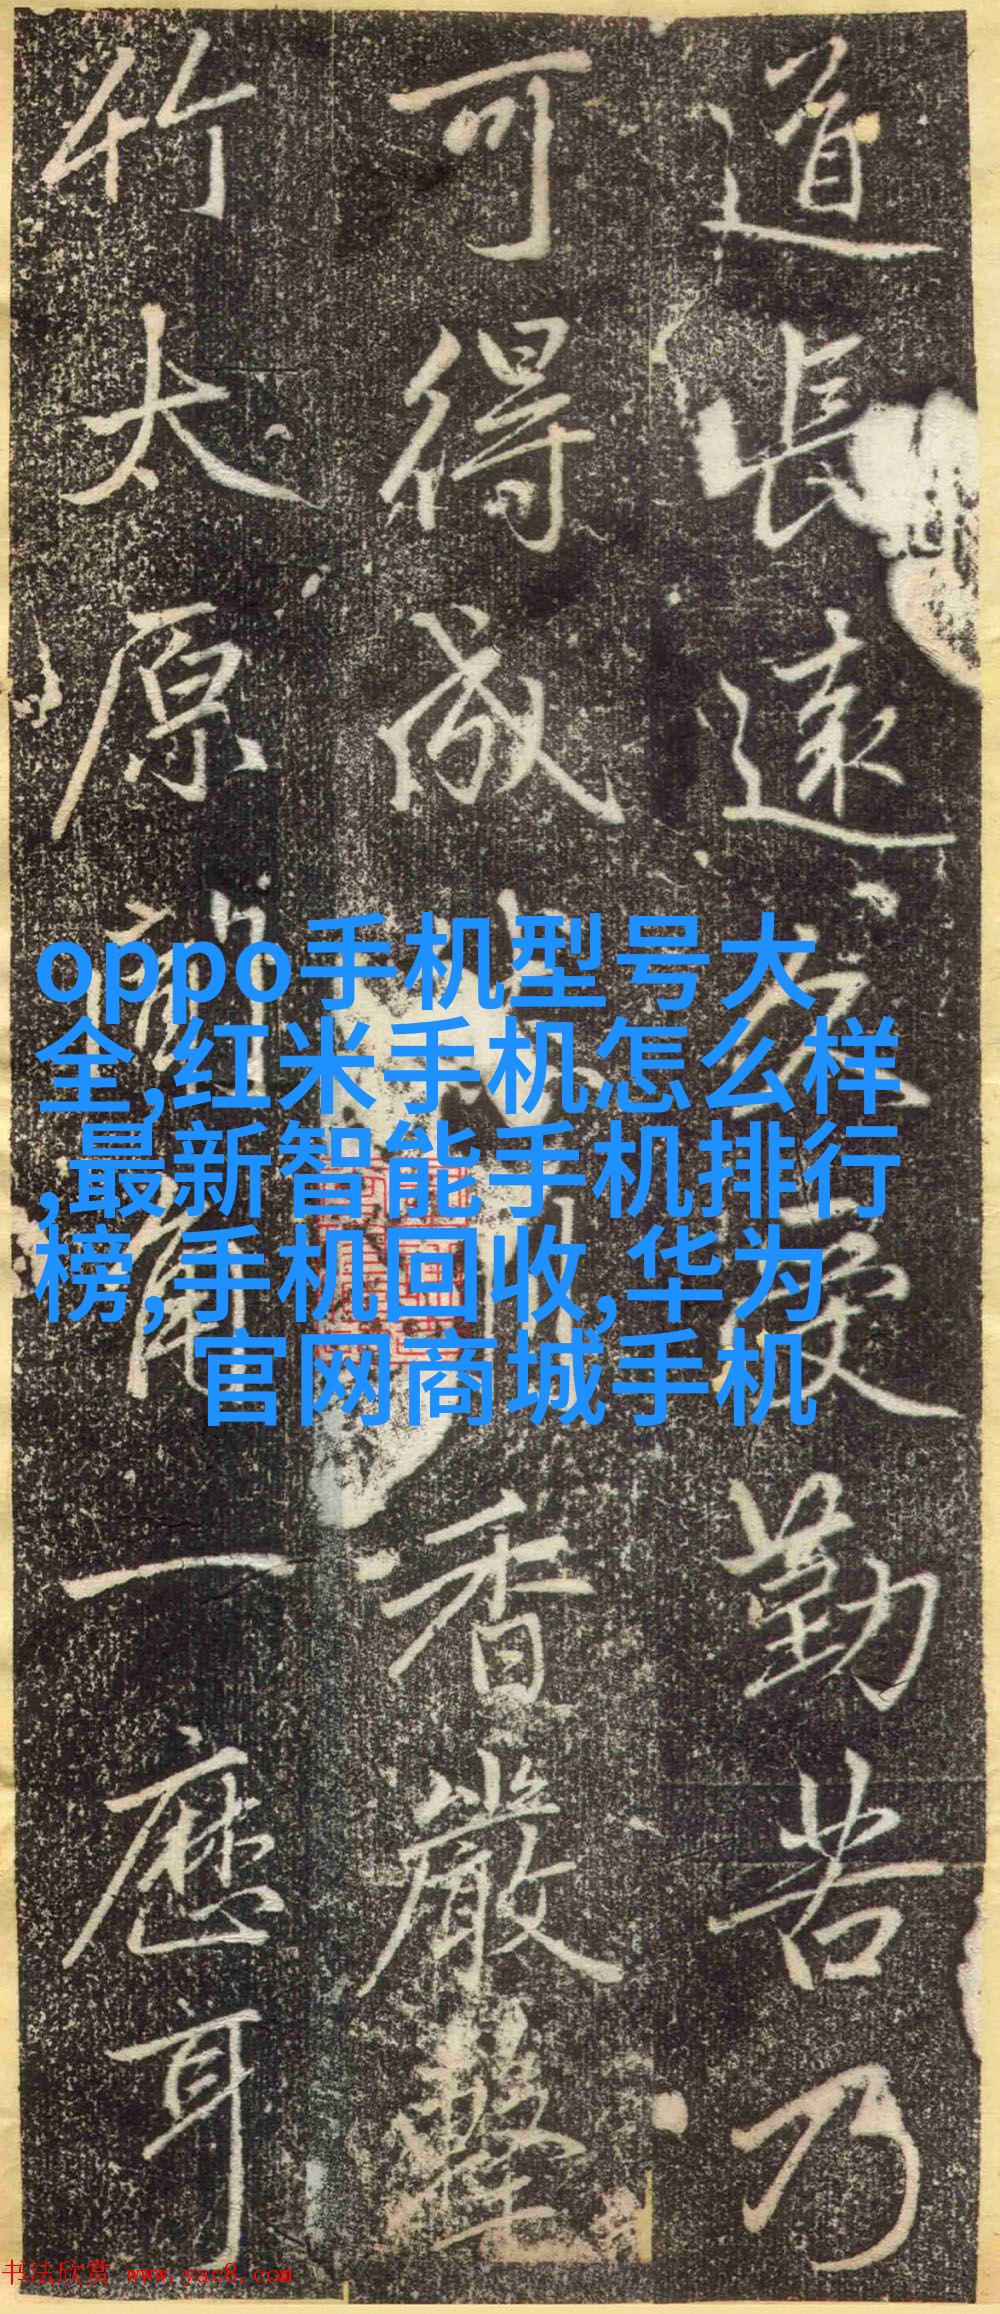 道長遠受勤苦乃
可得成香嚴擊
竹太原角一應耳
oppo手机型号大
全,红米手机怎么样
,最新智能手机排行
榜,手机回收,华为
官网商城手机
书法欣赏 www.yac8.com